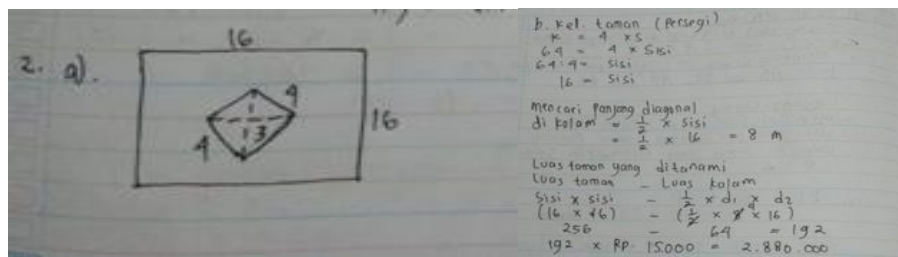 16
2. a).
4
16
4
3
b. Kel. taman (persegi)
K = 4 x S
64 = 4 x Sisi
64:4 = sisi
16 = sisi
mencari panjang diagonal
di kolam = 1/2 x sisi
= 1/2 x 16 = 8 m
Luas taman yang ditanami
Luas taman - Luas kolam
Sisi x sisi - 1/2 x d1 x d2
(16 x 16) - (1/2 x 8 4 x 16)
256 - 64 = 192
192 x Rp. 15000 = 2.880.000